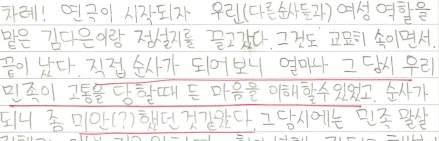 차례! 연극이 시작되자 우린(다른순사들과) 여성 역할을
맡은 김다은이랑 정설지를 끌고갔다. 그것도 교묘히 속이면서.
끝이 났다. 직접 순사가 되어보니 얼마나 그 당시 우리
민족이 고통을 당할때 든 마음을 이해할수있었고, 순사가
되니 좀 미안(?)했던것같았다. 그당시에는 민족 말살